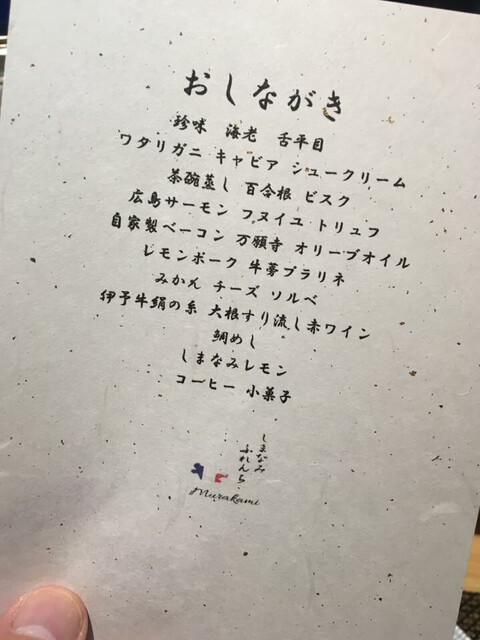 おしながき
珍味 海老 舌平目
ワタリガニ キャビア シュークリーム
茶碗蒸し 百合根 ビスク
広島サーモン フヌイユ トリュフ
自家製ベーコン 万願寺 オリーブオイル
レモンポーク 牛蒡プラリネ
みかん チーズ ソルベ
伊予牛絹の糸 大根すり流し赤ワイン
鯛めし
しまなみレモン
コーヒー 小菓子
しまなみ
ふれんち
Murakami